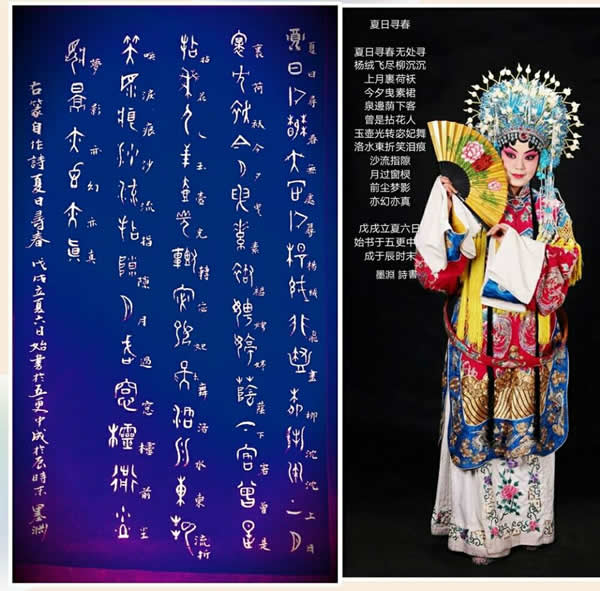 夏日尋春無處尋楊絨飛盡柳沈沈上月
裹荷袄今夕曳素裙娉婷蔭下客曾是
拈花人玉壺光轉宓妃舞洛水東流折
咲淚痕沙流指隙月過窓櫺前尘
夢影亦幻亦真
古篆自作詩夏日尋春 戊戌立夏六日始書於五更中成於辰時末 墨淵
夏日寻春
夏日寻春无处寻
杨绒飞尽柳沉沉
上月裹荷袄
今夕曳素裙
泉邊荫下客
曾是拈花人
玉壶光转宓妃舞
洛水東折笑泪痕
沙流指隙
月过窗棂
前尘梦影
亦幻亦真
戊戌立夏六日
始书于五更中
成于辰时末
墨淵 詩書